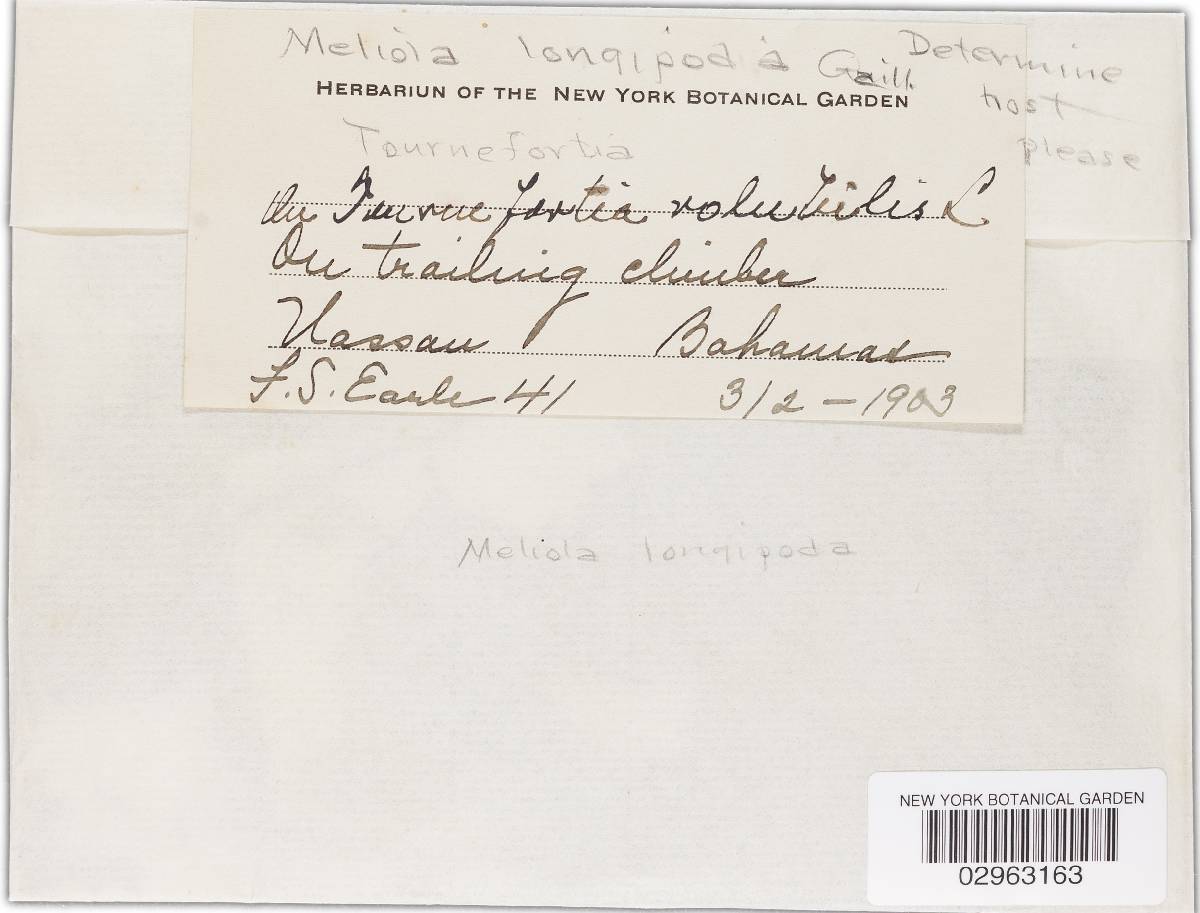 Meliola longipodia Gaill.
Determine
host
please
HERBARIUN OF THE NEW YORK BOTANICAL GARDEN
Tournefortia
On Tournefortia volubilis L
On trailing climber
Nassau Bahamas
F.S. Earle 41 3/2 - 1903
Meliola longipoda
NEW YORK BOTANICAL GARDEN
02963163